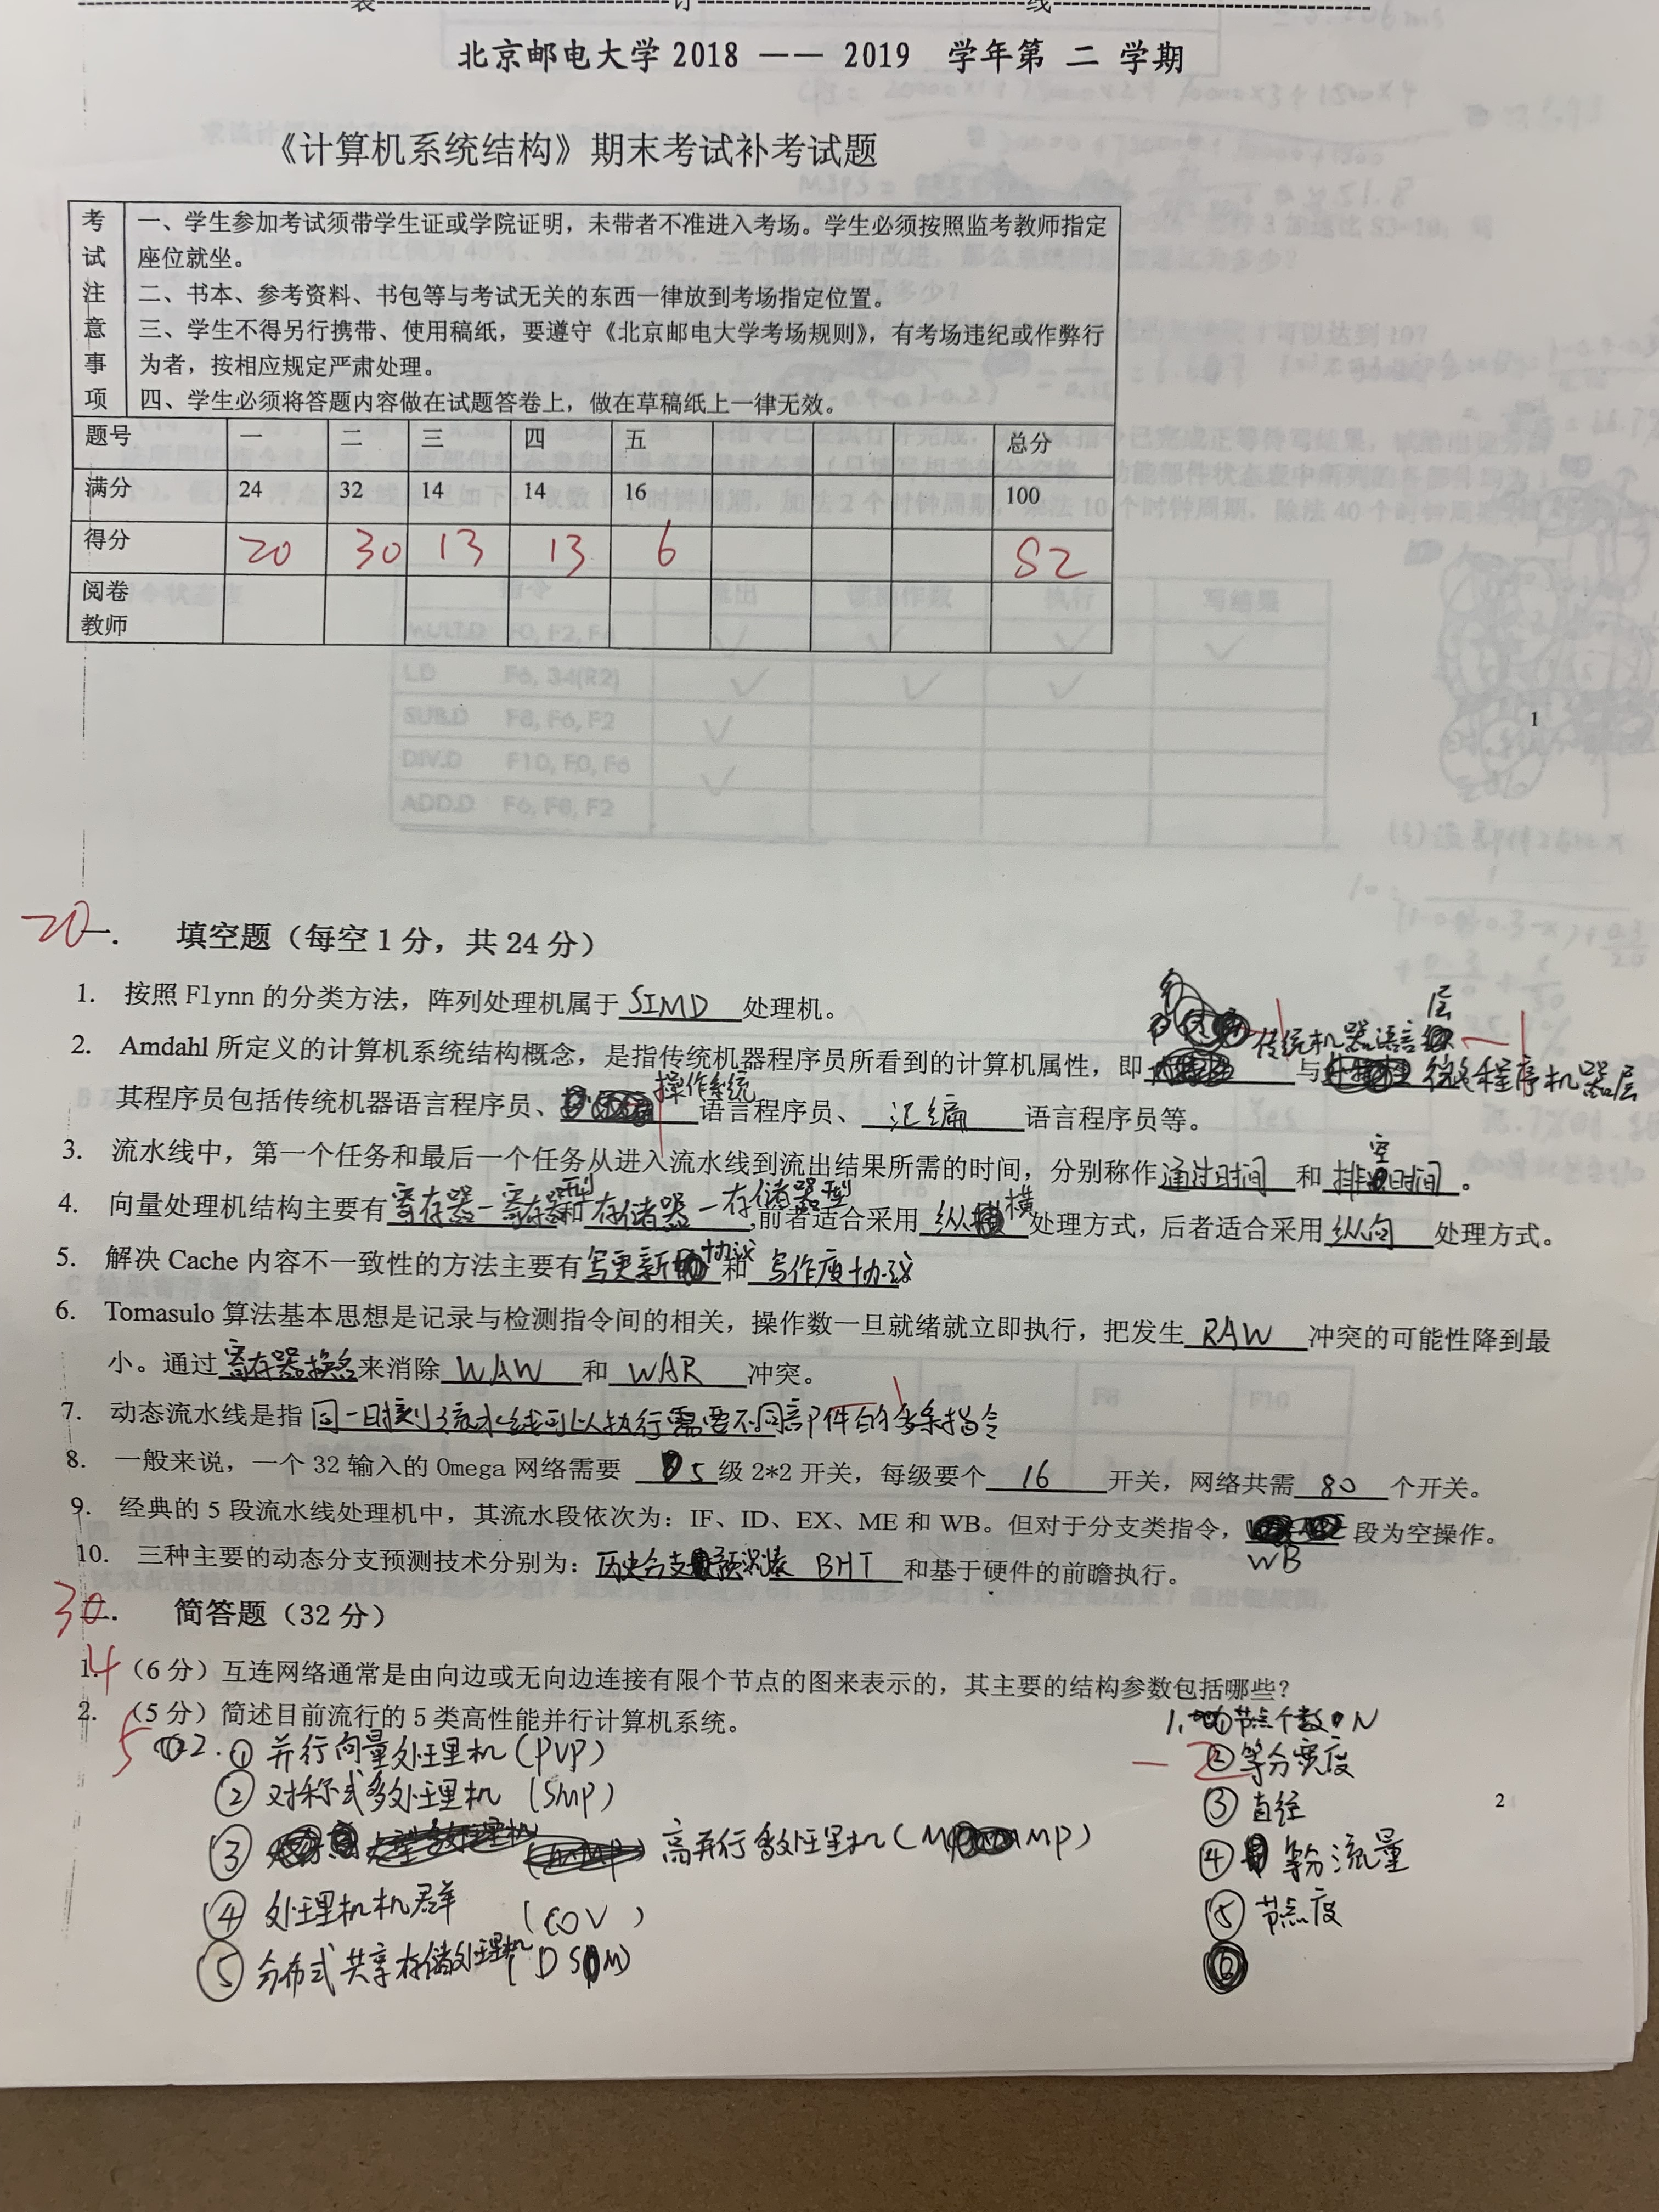 装 订 线
北京邮电大学 2018 —— 2019 学年第 二 学期
《计算机系统结构》期末考试补考试题
考试注意事项
一、学生参加考试须带学生证或学院证明，未带者不准进入考场。学生必须按照监考教师指定
座位就坐。
二、书本、参考资料、书包等与考试无关的东西一律放到考场指定位置。
三、学生不得另行携带、使用稿纸，要遵守《北京邮电大学考场规则》，有考场违纪或作弊行
为者，按相应规定严肃处理。
四、学生必须将答题内容做在试题答卷上，做在草稿纸上一律无效。
题号 一 二 三 四 五 总分
满分 24 32 14 14 16 100
得分 20 30 13 13 6 82
阅卷
教师
1
20 一. 填空题（每空 1 分，共 24 分）
1. 按照 Flynn 的分类方法，阵列处理机属于 SIMD 处理机。
2. Amdahl 所定义的计算机系统结构概念，是指传统机器程序员所看到的计算机属性，即 传统机器语言层 与 微程序机器层
其程序员包括传统机器语言程序员、 操作系统 语言程序员、 汇编 语言程序员等。
3. 流水线中，第一个任务和最后一个任务从进入流水线到流出结果所需的时间，分别称作 通过时间 和 排空时间 。
4. 向量处理机结构主要有 寄存器-寄存器型 和 存储器-存储器型 ,前者适合采用 纵横 处理方式，后者适合采用 纵向 处理方式。
5. 解决 Cache 内容不一致性的方法主要有 写更新协议 和 写作废协议
6. Tomasulo 算法基本思想是记录与检测指令间的相关，操作数一旦就绪就立即执行，把发生 RAW 冲突的可能性降到最
小。通过 寄存器换名 来消除 WAW 和 WAR 冲突。
7. 动态流水线是指 同一时刻流水线可以执行需要不同部件的多条指令
8. 一般来说，一个 32 输入的 Omega 网络需要 5 级 2*2 开关，每级要个 16 开关，网络共需 80 个开关。
9. 经典的 5 段流水线处理机中，其流水段依次为：IF、ID、EX、ME 和 WB。但对于分支类指令， WB 段为空操作。
10. 三种主要的动态分支预测技术分别为： 历史分支预测表 BHT 和基于硬件的前瞻执行。
30 二. 简答题（32 分）
4 1. （6 分）互连网络通常是由向边或无向边连接有限个节点的图来表示的，其主要的结构参数包括哪些？
2. （5 分）简述目前流行的 5 类高性能并行计算机系统。
5 2. ① 并行向量处理机 (PVP)
② 对称式多处理机 (SMP)
③ 高并行多处理机 (MMP)
④ 处理机机群 (COV)
⑤ 分布式共享存储处理机 (DSM)
1. ① 节点个数 N
-2 ② 等分宽度
③ 直径
④ 等分流量
⑤ 节点度
2